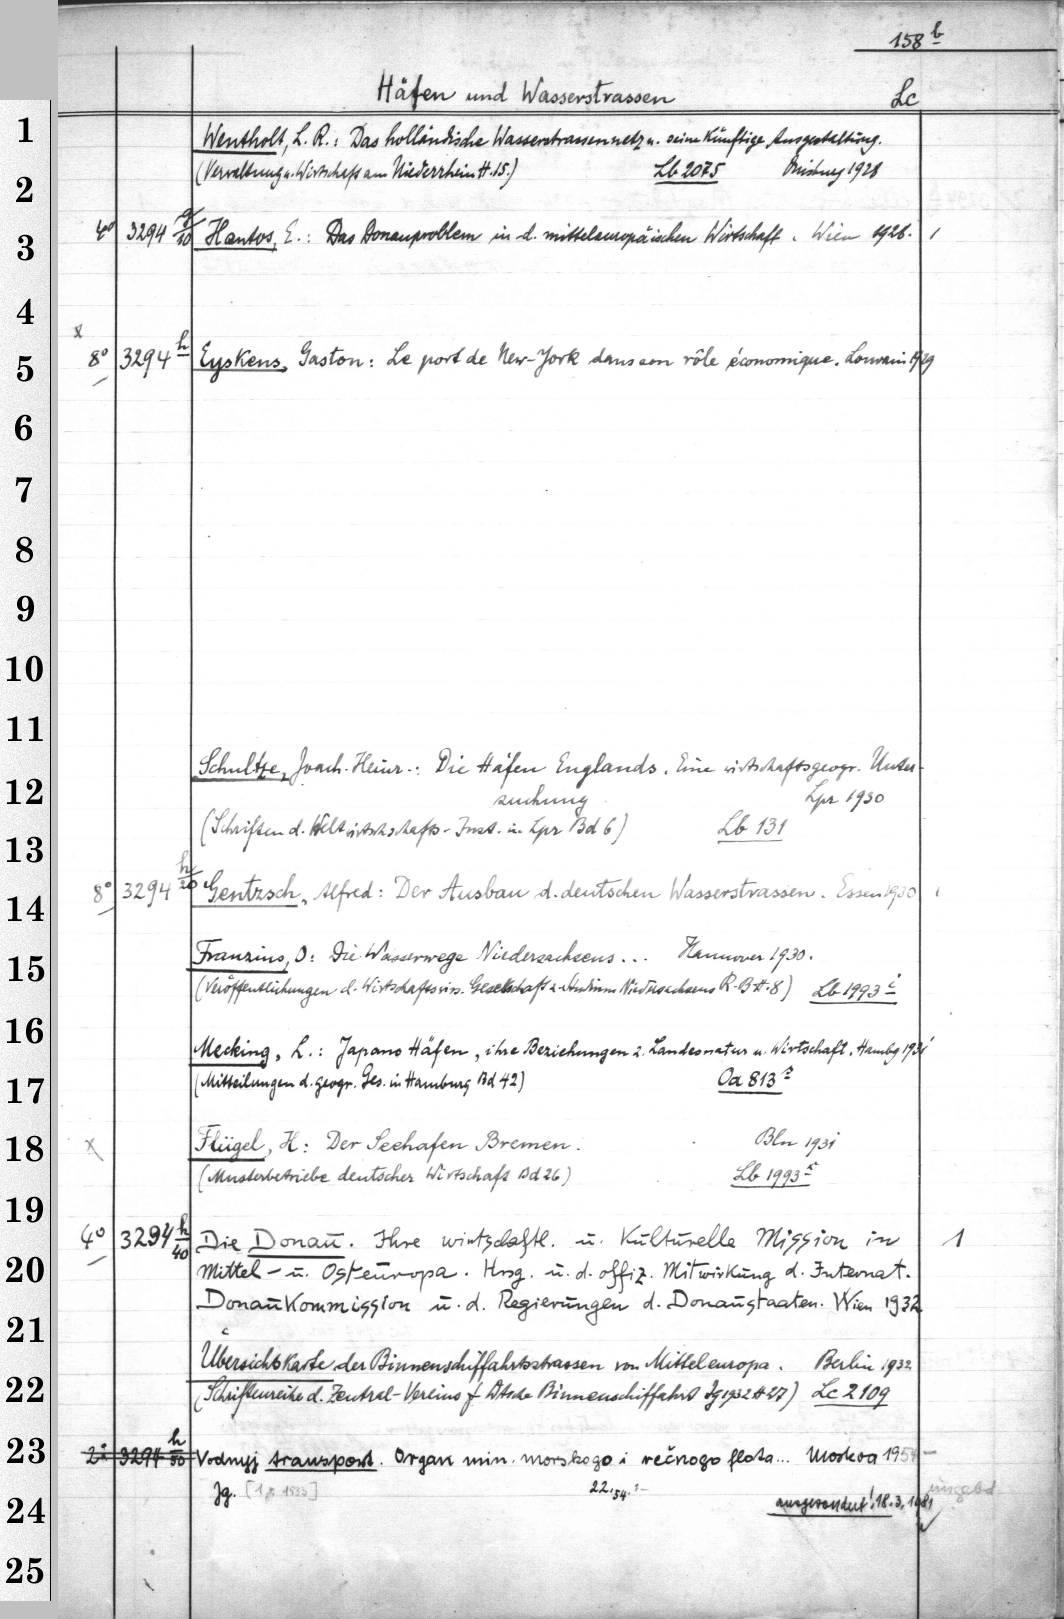 158 b
Häfen und Wasserstrassen Lc
1
Wentholt, L. R.: Das holländische Wasserstrassennetz u. seine künftige Ausgestaltung.
2
(Verwaltung u. Wirtschaft am Niederrhein H. 15.) Lb 2075 Duisburg 1928
3
4° 3294 g/10 Hantos, E.: Das Donauproblem in d. mitteleuropäischen Wirtschaft. Wien 1928. 1
4
x
5
8° 3294 h Eyskens, Gaston: Le port de New-York dans son rôle économique. Louvain 1929
6
7
8
9
10
11
Schultze, Joach. Heinr.: Die Häfen Englands. Eine wirtschaftsgeogr. Unter-
12
suchung Lpz 1930
13
(Schriften d. Weltwirtschafts-Inst. in Lpz Bd 6) Lb 131
14
8° 3294 h/20 Gentzsch, Alfred: Der Ausbau d. deutschen Wasserstrassen. Essen 1930 1
15
Franzius, O: Die Wasserwege Niedersachsens... Hannover 1930.
(Veröffentlichungen d. Wirtschaftswiss. Gesellschaft z. Studium Niedersachsens R. B H. 8) Lb 1993 i
16
Mecking, L.: Japans Häfen, ihre Beziehungen z. Landesnatur u. Wirtschaft. Hambg 1931
17
(Mitteilungen d. geogr. Ges. in Hamburg Bd 42) Oa 813
18
x Flügel, H: Der Seehafen Bremen. Bln 1931
(Musterbetriebe deutscher Wirtschaft Bd 26) Lb 1993
19
4° 3294 h/40 Die Donau. Ihre wirtschaftl. u. kulturelle Mission in 1
20
Mittel- u. Osteuropa. Hrsg. u. d. offiz. Mitwirkung d. Internat.
Donaukommission u. d. Regierungen d. Donaustaaten. Wien 1932
21
Übersichtskarte der Binnenschiffahrtsstrassen von Mitteleuropa. Berlin 1932
22
(Schriftenreihe d. Zentral-Vereins f. Dtsche Binnenschiffahrt Jg 1932 H 27) Lc 2109
23
2° 3294 h/50 Vodnyj transport. Organ min. morskogo i rečnogo flota... Moskva 1954-
Jg. 22.54.-
24
ausgesondert! 18.3.1981
25